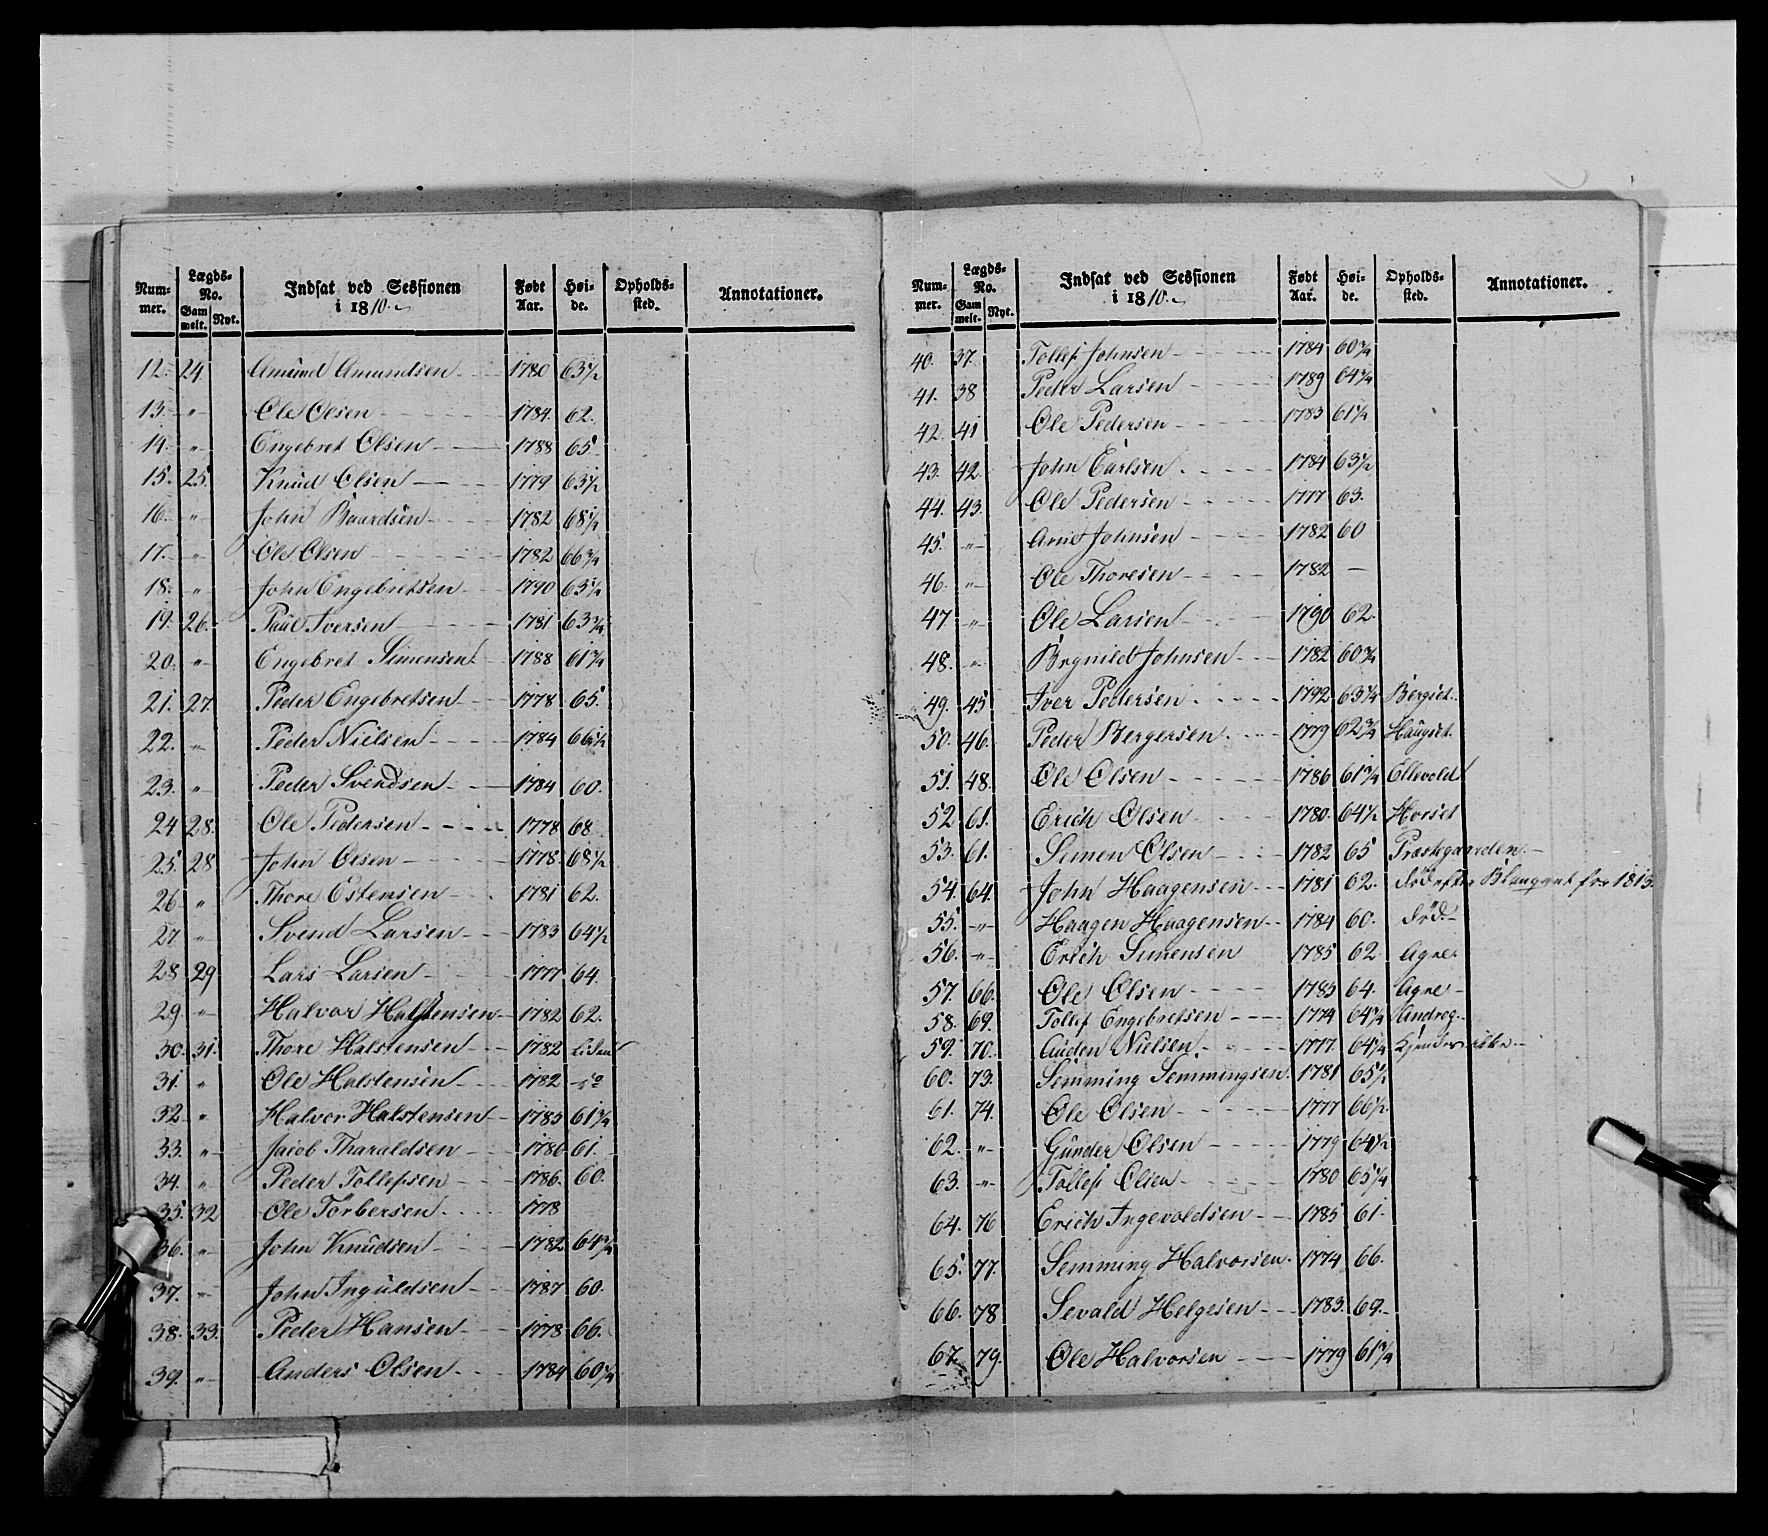 Num-mer. | Lægds-No. Gammelt. | Nyt. | Indsat ved Sessionen i 1810. | Født Aar. | Høide. | Opholds-sted. | Annotationer.
12. 24 Amund Amundsen 1780 63½
13. " Ole Olsen 1784. 62.
14. " Engebret Olsen 1788 65
15. 25. Knud Olsen 1779 63½
16. " John Baardsen 1782 68¼
17. " Ole Olsen 1782 66¾
18. " John Engebretsen 1790 63¼
19. 26. Paul Iversen 1781 63¾
20. " Engebret Simensen 1788 61¾
21. 27. Peder Engebretsen 1778 65.
22. " Peder Nielsen 1784 66½
23. " Peder Svendsen 1784 60.
24 28. Ole Pedersen 1778 68
25. 28 John Olsen 1778. 68½
26 " Thore Estensen 1781 62.
27 " Svend Larsen 1783 64½
28 29 Lars Larsen 1777. 64.
29. " Halvor Halstensen 1782 62.
30. 31. Thore Halstensen 1782 Liden
31. " Ole Halstensen 1782 do
32 " Halvor Halstensen 1785 61¾
33. " Jacob Tharaldsen 1786 61.
34. " Peder Tollefsen 1786. 60.
35. 32 Ole Torbersen 1778
36. " John Knudsen 1782 64¾
37. " John Inguldsen 1787 60.
38. 33. Peder Hansen 1778 66.
39. " Anders Olsen 1784 60¼
Num-mer. | Lægds-No. Gammelt. | Nyt. | Indsat ved Sessionen i 1810. | Født Aar. | Høide. | Opholds-sted. | Annotationer.
40. 37. Tollef Johnsen 1784 60¾
41. 38 Peder Larsen 1789 64¾
42. 41 Ole Pedersen 1783 61¼
43. 42. John Carlsen 1784 63½
44. 43. Ole Pedersen 1777 63.
45. " Arne Johnsen 1782 60
46. " Ole Thoresen 1782 —
47 " Ole Larsen 1790 62.
48. " Brynild Johnsen 1782 60¾
49. 45 Iver Pedersen 1792 63¼ Bergset.
50. 46. Peder Bergersen 1779 62¾ Haugset.
51. 48. Ole Olsen 1786 61¾ Ellevold
52. 61. Erich Olsen 1780. 64½ Horset
53. 61. Simen Olsen 1782 65 Præstegaarden.
54. 64. John Haagensen 1781 62. død efter for 1813.
55. " Haagen Haagensen 1784 60. død
56. " Erich Simensen 1785 62 Agre.
57. 66. Ole Olsen 1785 64. Agre
58. 69. Tollef Engebretsen 1774 64¼ Andreg.
59. 70. Auden Nielsen 1777. 64¼ Kjendes ikke
60. 73. Semming Semmingsen. 1781 65½
61. 74. Ole Olsen 1777 66½
62. " Gunder Olsen 1779 64½
63. " Tollef Olsen 1780 65¼
64. 76 Erich Ingevoldsen 1785 61.
65. 77. Semming Halvorsen. 1774 66.
66. 78 Sevald Helgesen 1783. 69.
67. 79. Ole Halvorsen 1779 61¾